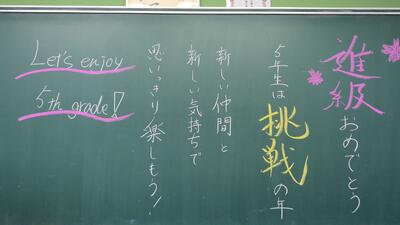 進級おめでとう
5年生は挑戦の年
新しい仲間と
新しい気持ちで
思いっきり楽しもう！
Let's enjoy
5th grade!